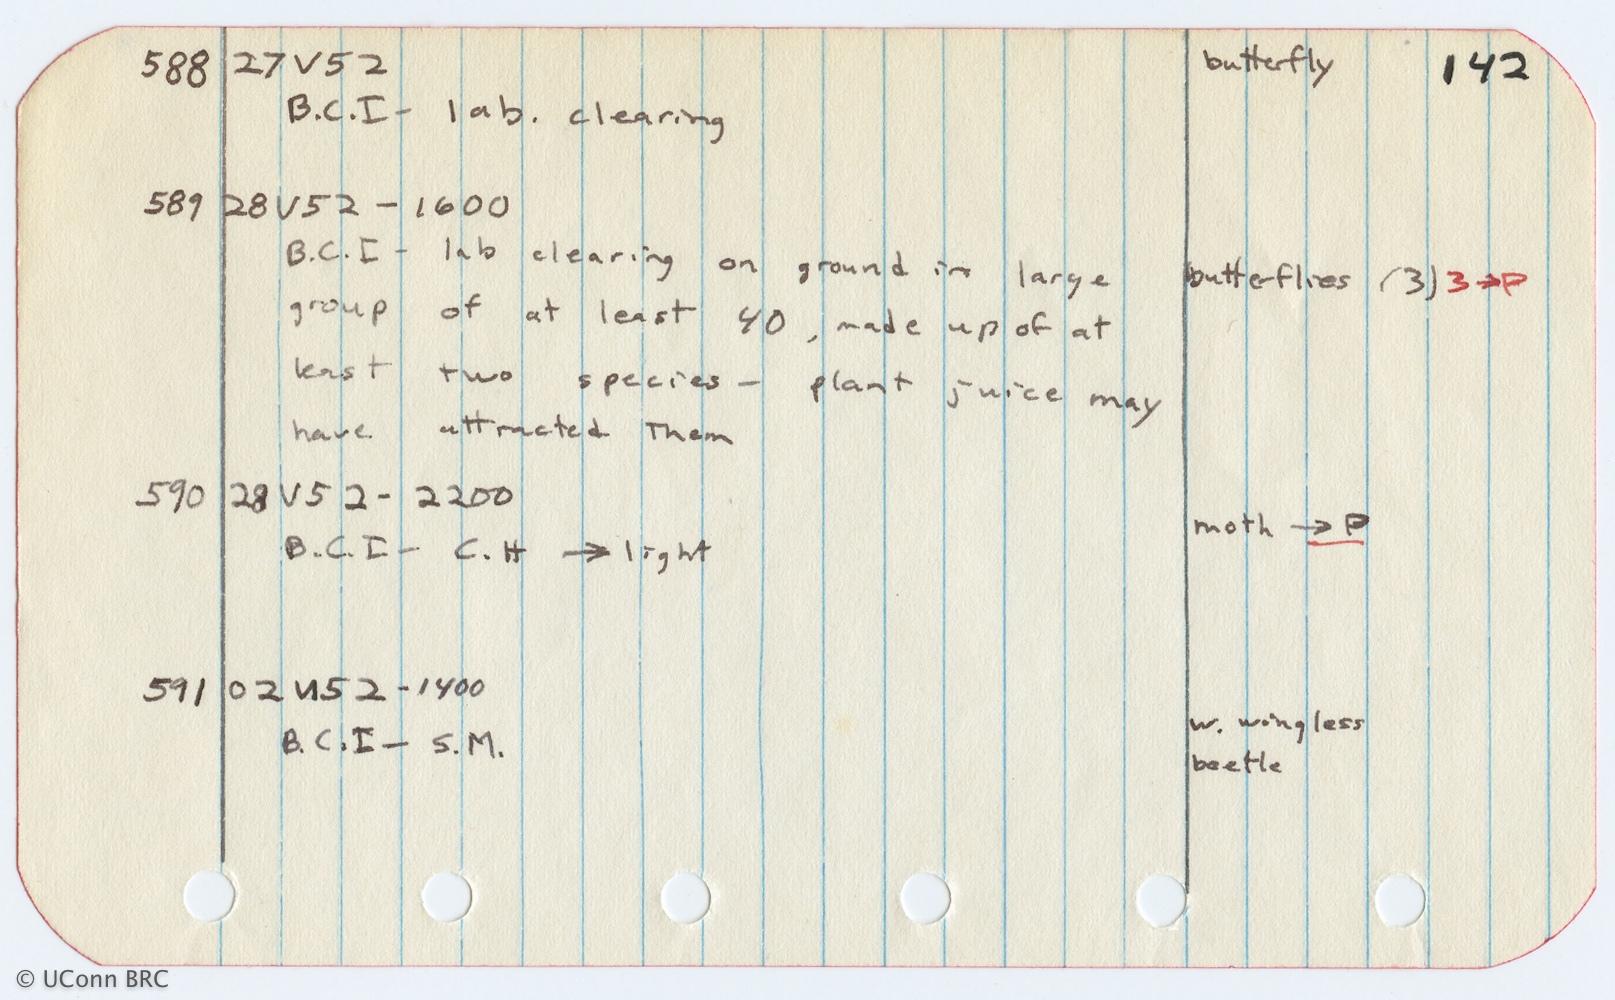 588 27 V 52 butterfly 142
B.C.I - lab. clearing
589 28 V 52 - 1600
B.C.I - lab clearing on ground in large butterflies (3) 3 → P
group of at least 40, made up of at
least two species - plant juice may
have attracted them
590 28 V 52 - 2200
moth → P
B.C.I - C.H → light
591 02 VI 52 - 1400
w. wingless
B.C.I - S.M.
beetle
© UConn BRC